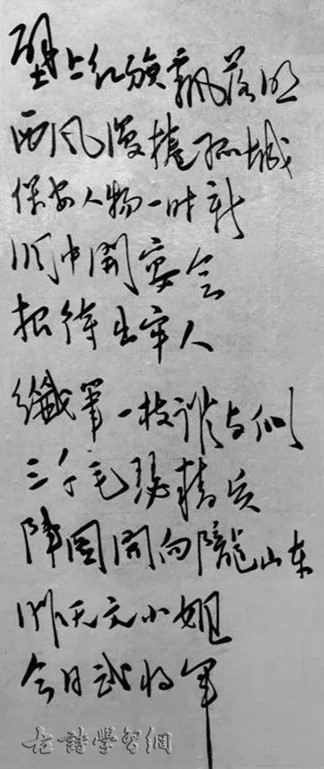 壁上红旗飘落照
西风漫捲孤城
保安人物一时新
洞中開宴会
招待出牢人
纖筆一枝谁与似
三千毛瑟精兵
陣圖開向隴山东
昨天文小姐
今日武将军
古詩學習網